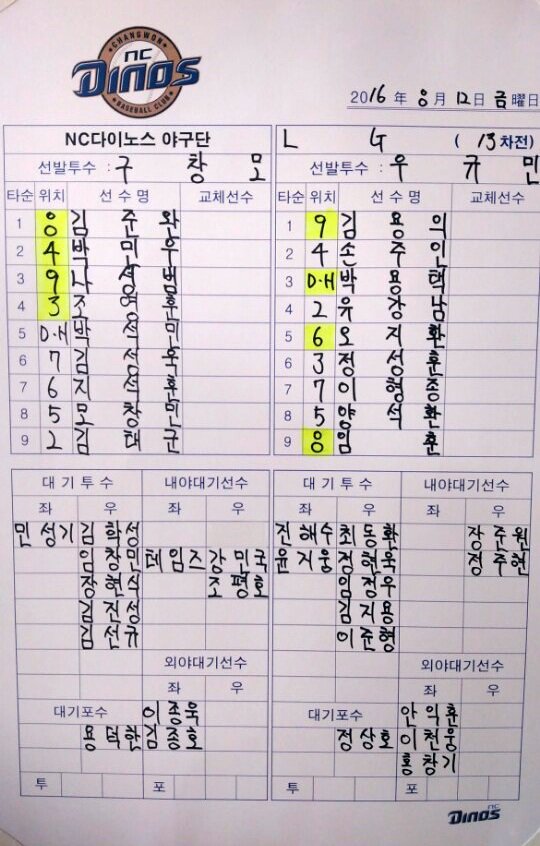 CHANGWON
NC
DINOS
BASEBALL CLUB
2016 年 8月 12日 금曜日
NC다이노스 야구단
선발투수 : 구 창 모
타순 위치 선 수 명 교체선수
1 8 김 준 완
2 4 박 민 우
3 9 나 성 범
4 3 조 영 훈
5 D·H 박 석 민
6 7 김 성 욱
7 6 지 석 훈
8 5 모 창 민
9 2 김 태 군
L G ( 13차전)
선발투수 : 우 규 민
타순 위치 선 수 명 교체선수
1 9 김 용 의
2 4 손 주 인
3 D·H 박 용 택
4 2 유 강 남
5 6 오 지 환
6 3 정 성 훈
7 7 이 형 종
8 5 양 석 환
9 8 임 훈
대 기 투 수 내야대기선수
좌 우 좌 우
민 성기 김 학성
임 창민 테임즈 강 민국
장 현식 조 평호
김 진성
김 선규
외야대기선수
좌 우
대기포수 이 종욱
용 덕한 김 종호
투 포
대 기 투 수 내야대기선수
좌 우 좌 우
진 해수 최 동환 장 준원
윤 지웅 정 현욱 정 주현
임 정우
김 지용
이 준형
외야대기선수
좌 우
대기포수 안 익훈
정 상호 이 천웅
홍 창기
투 포
NC
DINOS